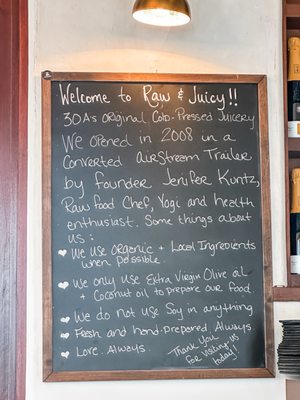 Welcome to Raw & Juicy!!
30A's original Cold-Pressed Juicery
We opened in 2008 in a
converted airstream Trailer
by founder Jenifer Kuntz,
Raw food Chef, Yogi and health
enthusiast. Some things about
us:
We use organic + Local Ingredients
when possible.
We only use Extra Virgin Olive oil
+ Coconut oil to prepare our food
We do not use Soy in anything
Fresh and hand-prepared. Always
Love. Always.
Thank You
for visiting us
today!